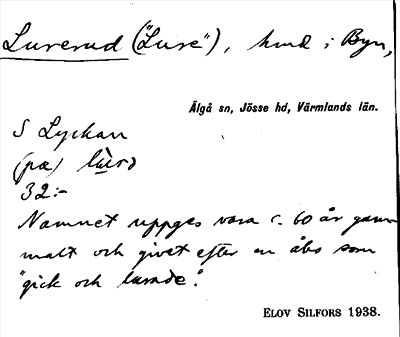 Lurerud ("Lure"), hmd i Byn,
Älgå sn, Jösse hd, Värmlands län.
S Lyckan
(pa) lùrə
32:-
Namnet uppges vara c. 60 år gam
malt och givet efter en åbo som
"gick och lurade".
ELOV SILFORS 1938.